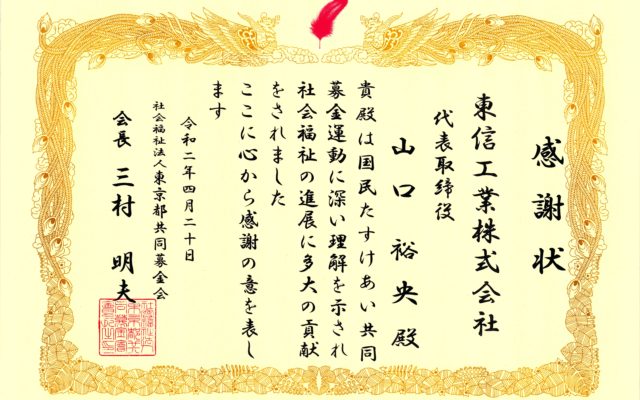 感謝状
東信工業株式会社
代表取締役
山口裕央殿
貴殿は国民たすけあい共同
募金運動に深い理解を示され
社会福祉の進展に多大の貢献
をされました
ここに心から感謝の意を表し
ます
令和二年四月二十日
社会福祉法人東京都共同募金会
会長 三村 明夫